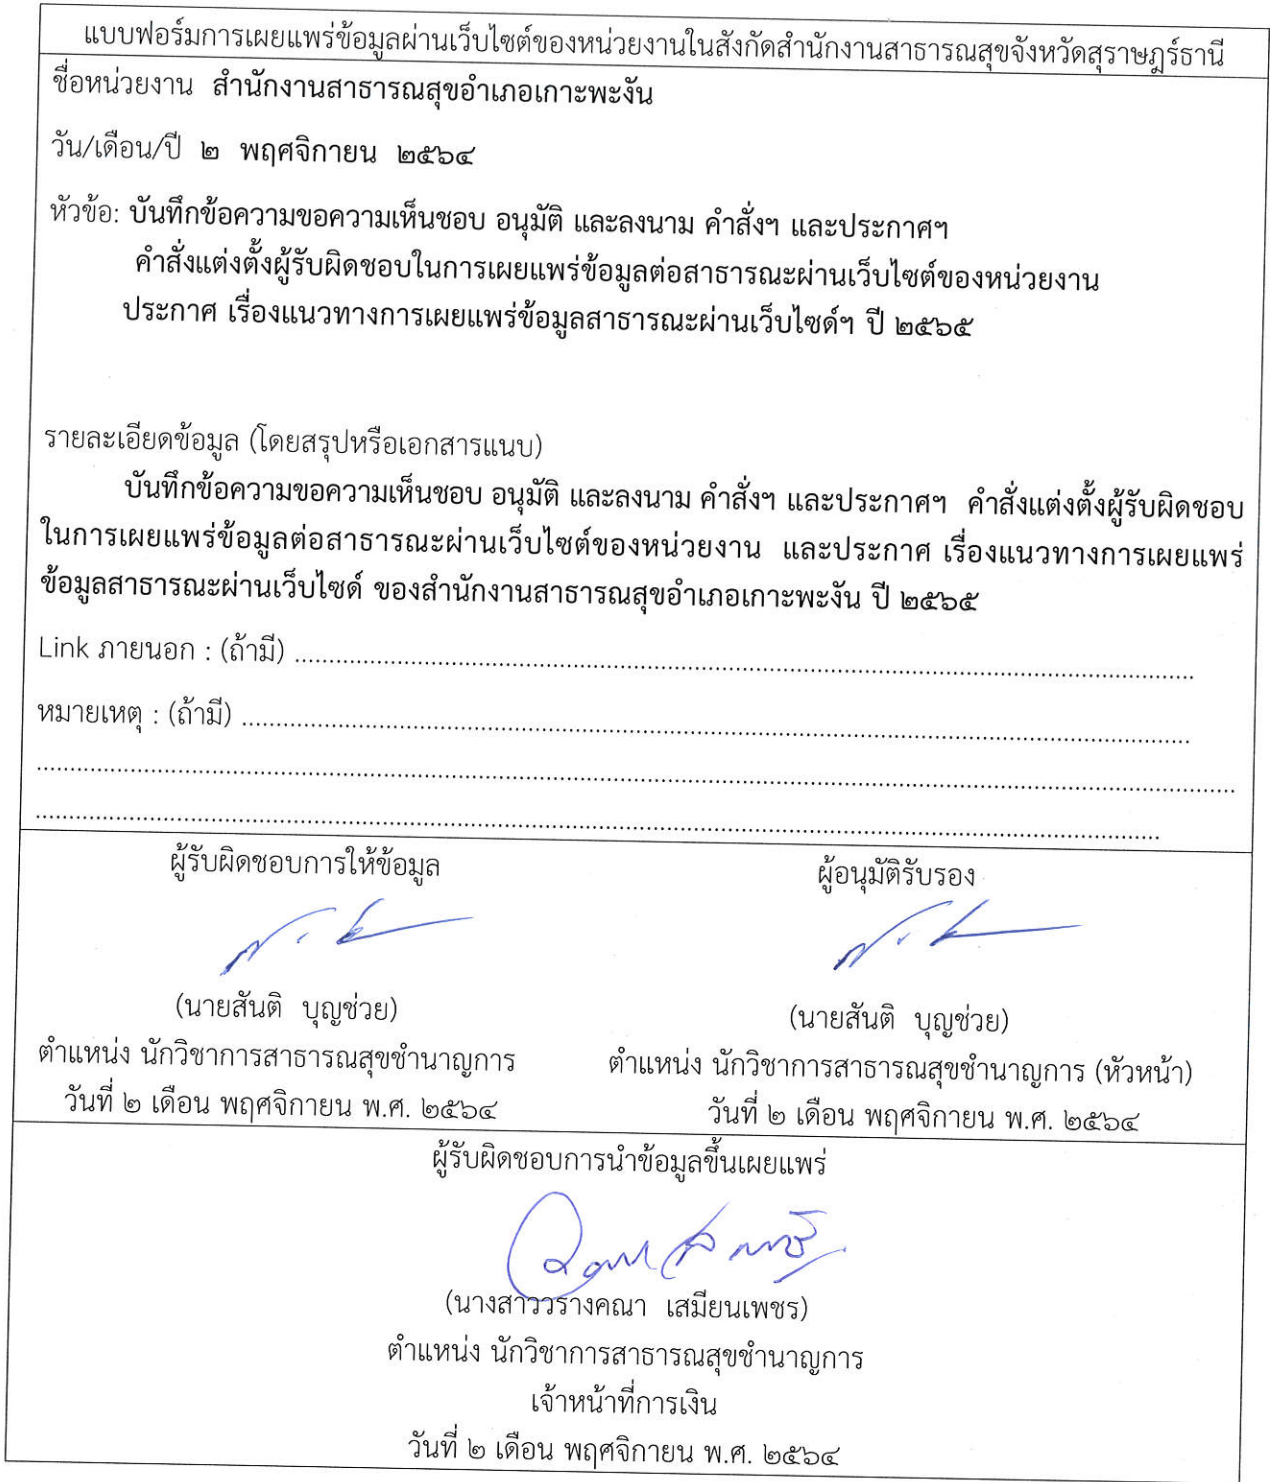 แบบฟอร์มการเผยแพร่ข้อมูลผ่านเว็บไซต์ของหน่วยงานในสังกัดสำนักงานสาธารณสุขจังหวัดสุราษฎร์ธานี
ชื่อหน่วยงาน สำนักงานสาธารณสุขอำเภอเกาะพะงัน
วัน/เดือน/ปี ๒ พฤศจิกายน ๒๕๖๔
หัวข้อ: บันทึกข้อความขอความเห็นชอบ อนุมัติ และลงนาม คำสั่งฯ และประกาศฯ
คำสั่งแต่งตั้งผู้รับผิดชอบในการเผยแพร่ข้อมูลต่อสาธารณะผ่านเว็บไซต์ของหน่วยงาน
ประกาศ เรื่องแนวทางการเผยแพร่ข้อมูลสาธารณะผ่านเว็บไซด์ฯ ปี ๒๕๖๕
รายละเอียดข้อมูล (โดยสรุปหรือเอกสารแนบ)
บันทึกข้อความขอความเห็นชอบ อนุมัติ และลงนาม คำสั่งฯ และประกาศฯ คำสั่งแต่งตั้งผู้รับผิดชอบ
ในการเผยแพร่ข้อมูลต่อสาธารณะผ่านเว็บไซต์ของหน่วยงาน และประกาศ เรื่องแนวทางการเผยแพร่
ข้อมูลสาธารณะผ่านเว็บไซด์ ของสำนักงานสาธารณสุขอำเภอเกาะพะงัน ปี ๒๕๖๕
Link ภายนอก : (ถ้ามี) ........................................................................
หมายเหตุ : (ถ้ามี) ........................................................................
........................................................................
........................................................................
ผู้รับผิดชอบการให้ข้อมูล ผู้อนุมัติรับรอง
(นายสันติ บุญช่วย) (นายสันติ บุญช่วย)
ตำแหน่ง นักวิชาการสาธารณสุขชำนาญการ ตำแหน่ง นักวิชาการสาธารณสุขชำนาญการ (หัวหน้า)
วันที่ ๒ เดือน พฤศจิกายน พ.ศ. ๒๕๖๔ วันที่ ๒ เดือน พฤศจิกายน พ.ศ. ๒๕๖๔
ผู้รับผิดชอบการนำข้อมูลขึ้นเผยแพร่
(นางสาววรางคณา เสมียนเพชร)
ตำแหน่ง นักวิชาการสาธารณสุขชำนาญการ
เจ้าหน้าที่การเงิน
วันที่ ๒ เดือน พฤศจิกายน พ.ศ. ๒๕๖๔